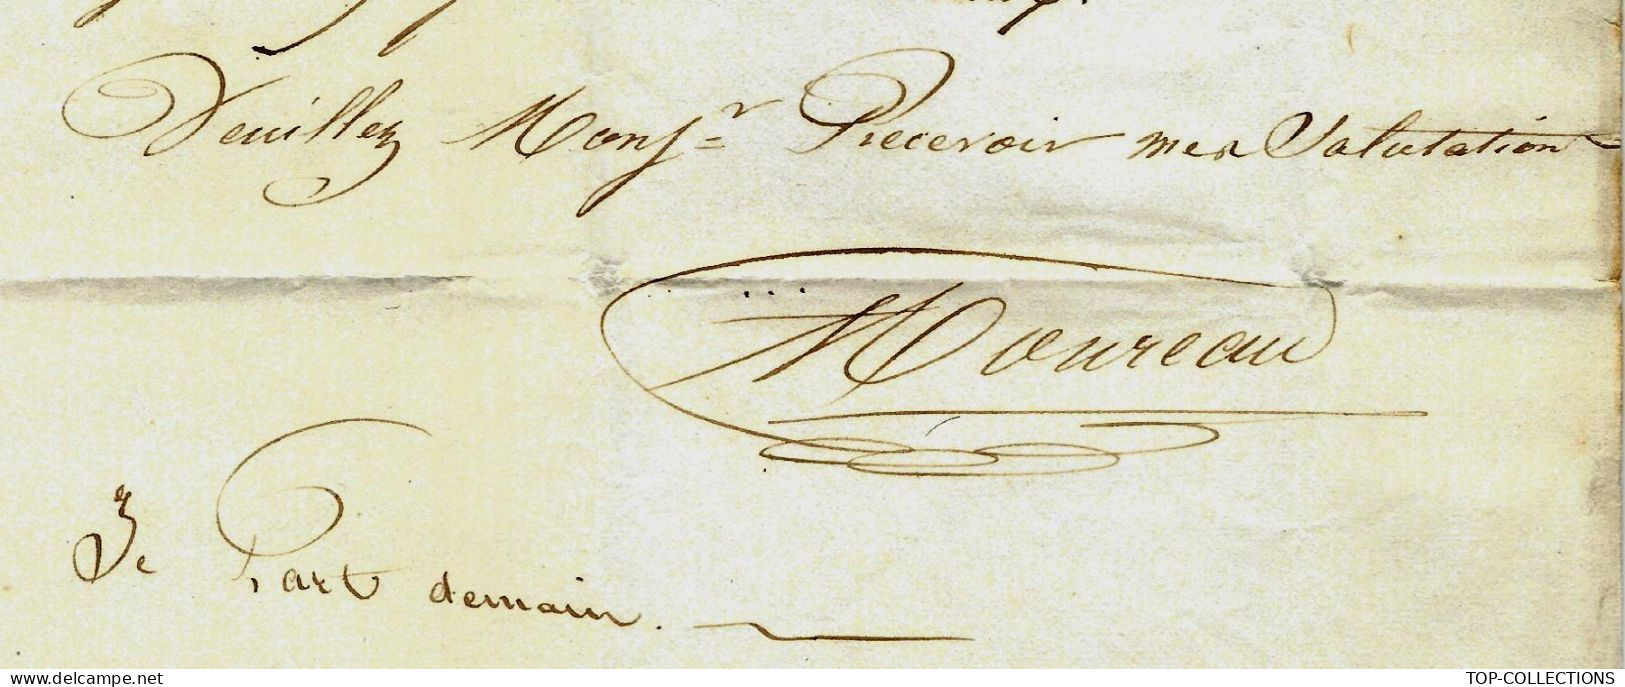 Veuillez Monsr Recevoir mes Salutation
Moureau
Je Part demain.
www.delcampe.net
TOP-COLLECTIONS